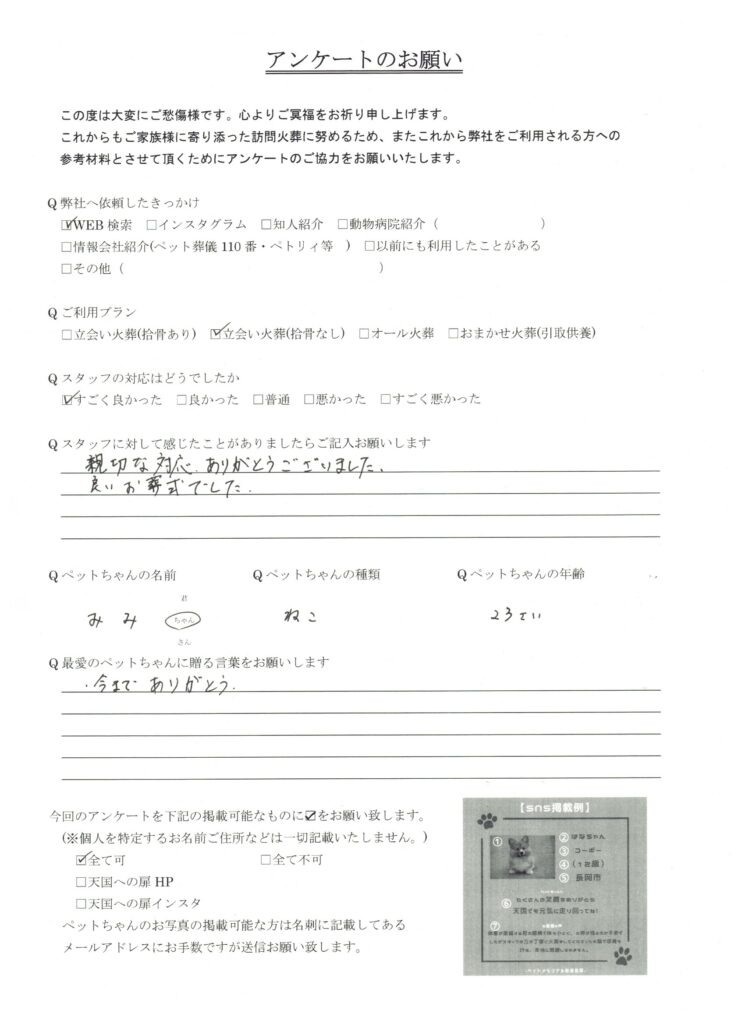 アンケートのお願い
この度は大変にご愁傷様です。心よりご冥福をお祈り申し上げます。
これからもご家族様に寄り添った訪問火葬に努めるため、またこれから弊社をご利用される方への
参考材料とさせて頂くためにアンケートのご協力をお願いいたします。
Q 弊社へ依頼したきっかけ
☑WEB 検索 □インスタグラム □知人紹介 □動物病院紹介（ ）
□情報会社紹介(ペット葬儀 110 番・ペトリィ等 ) □以前にも利用したことがある
□その他（ ）
Q ご利用プラン
□立会い火葬(拾骨あり) ☑立会い火葬(拾骨なし) □オール火葬 □おまかせ火葬(引取供養)
Q スタッフの対応はどうでしたか
☑すごく良かった □良かった □普通 □悪かった □すごく悪かった
Q スタッフに対して感じたことがありましたらご記入お願いします
親切な対応、ありがとうございました、
良いお葬式でした.
Q ペットちゃんの名前 Q ペットちゃんの種類 Q ペットちゃんの年齢
君
みみ ちゃん ねこ 23さい
さん
Q 最愛のペットちゃんに贈る言葉をお願いします
・今まで ありがとう.
今回のアンケートを下記の掲載可能なものに☑をお願い致します。
(※個人を特定するお名前ご住所などは一切記載いたしません。)
☑全て可 □全て不可
□天国への扉 HP
□天国への扉インスタ
ペットちゃんのお写真の掲載可能な方は名刺に記載してある
メールアドレスにお手数ですが送信お願い致します。
【sns掲載例】
① ② はなちゃん
③ コーギー
④ (12歳)
⑤ 長岡市
⑥ たくさんの笑顔をありがとう
天国でも元気に走り回ってね!
⑦